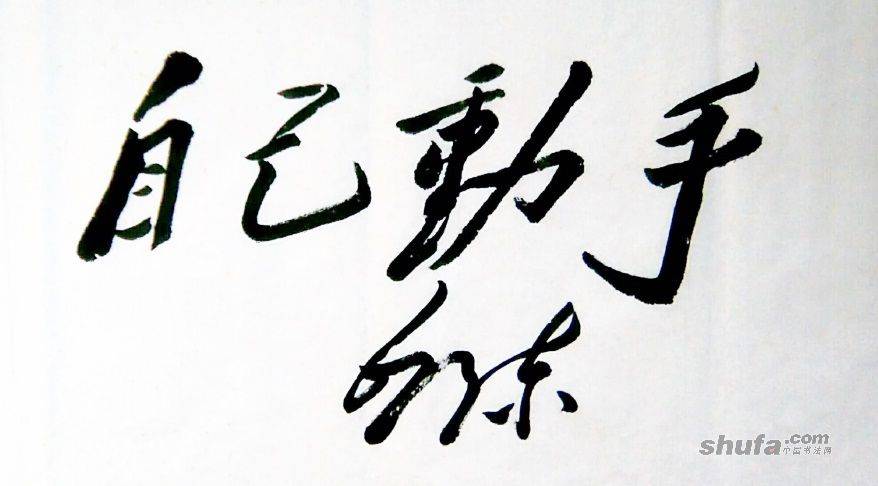 自己動手
shufa.com
中国书法网